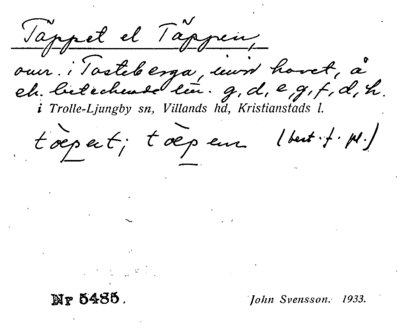 Täppet el Täppen,
omr. i Tosteberga, invid havet, å
ek. betecknade lin. g, d, e, g, f, d, h.
i Trolle-Ljungby sn, Villands hd, Kristianstads l.
tö̀pet; tö̀pen (best. f. pl.)
Nr 5485. John Svensson. 1933.